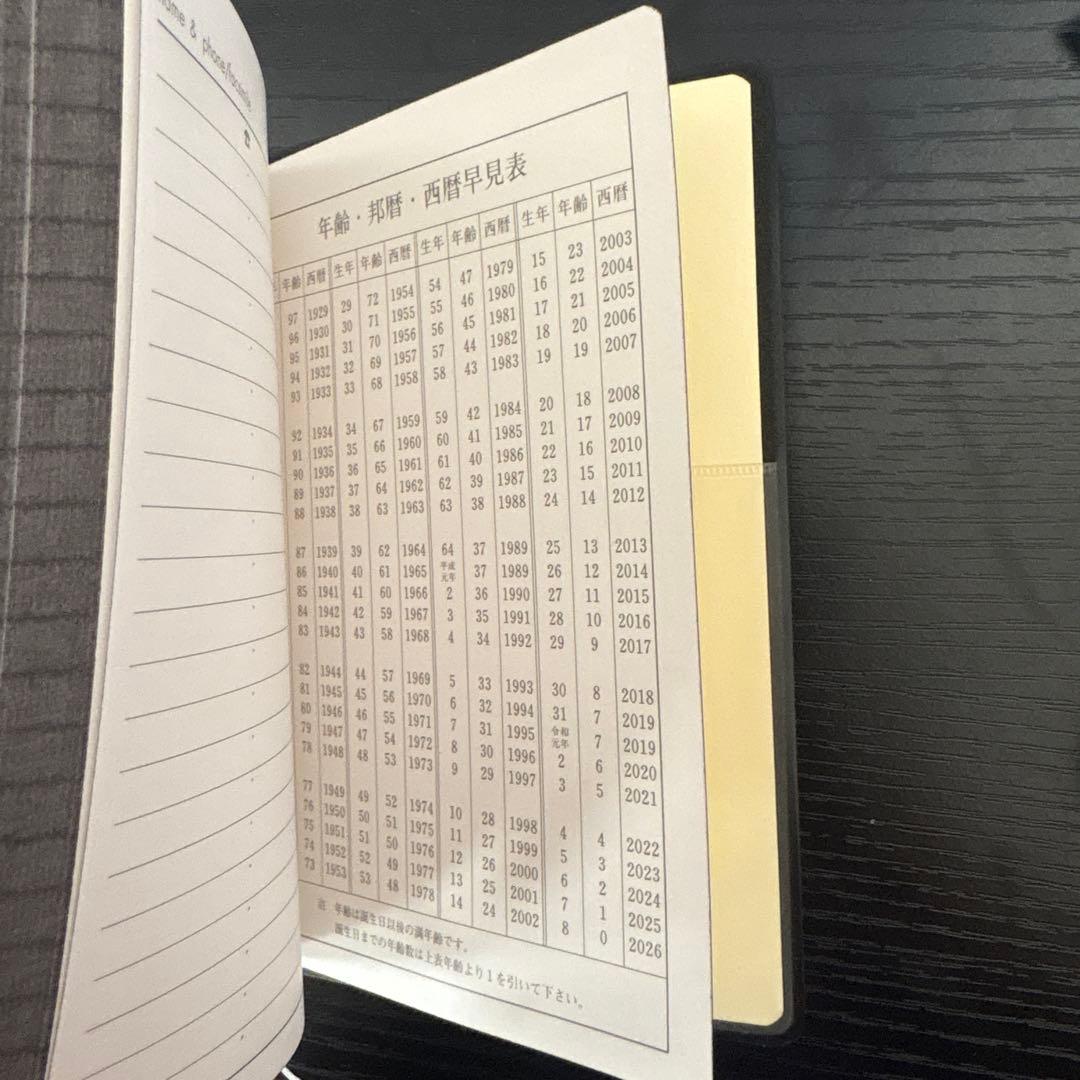 name & phone/facsimile
☎
年齢・邦暦・西暦早見表
年齢 西暦 生年 年齢 西暦 生年 年齢 西暦 生年 年齢 西暦
97 1929 29 72 1954 54 47 1979 15 23 2003
96 1930 30 71 1955 55 46 1980 16 22 2004
95 1931 31 70 1956 56 45 1981 17 21 2005
94 1932 32 69 1957 57 44 1982 18 20 2006
93 1933 33 68 1958 58 43 1983 19 19 2007
92 1934 34 67 1959 59 42 1984 20 18 2008
91 1935 35 66 1960 60 41 1985 21 17 2009
90 1936 36 65 1961 61 40 1986 22 16 2010
89 1937 37 64 1962 62 39 1987 23 15 2011
88 1938 38 63 1963 63 38 1988 24 14 2012
87 1939 39 62 1964 64 37 1989 25 13 2013
86 1940 40 61 1965 平成元年 37 1989 26 12 2014
85 1941 41 60 1966 2 36 1990 27 11 2015
84 1942 42 59 1967 3 35 1991 28 10 2016
83 1943 43 58 1968 4 34 1992 29 9 2017
82 1944 44 57 1969 5 33 1993 30 8 2018
81 1945 45 56 1970 6 32 1994 31 7 2019
80 1946 46 55 1971 7 31 1995 令和元年 7 2019
79 1947 47 54 1972 8 30 1996 2 6 2020
78 1948 48 53 1973 9 29 1997 3 5 2021
77 1949 49 52 1974 10 28 1998 4 4 2022
76 1950 50 51 1975 11 27 1999 5 3 2023
75 1951 51 50 1976 12 26 2000 6 2 2024
74 1952 52 49 1977 13 25 2001 7 1 2025
73 1953 53 48 1978 14 24 2002 8 0 2026
註 年齢は誕生日以後の満年齢です。
誕生日までの年齢数は上表年齢より1を引いて下さい。